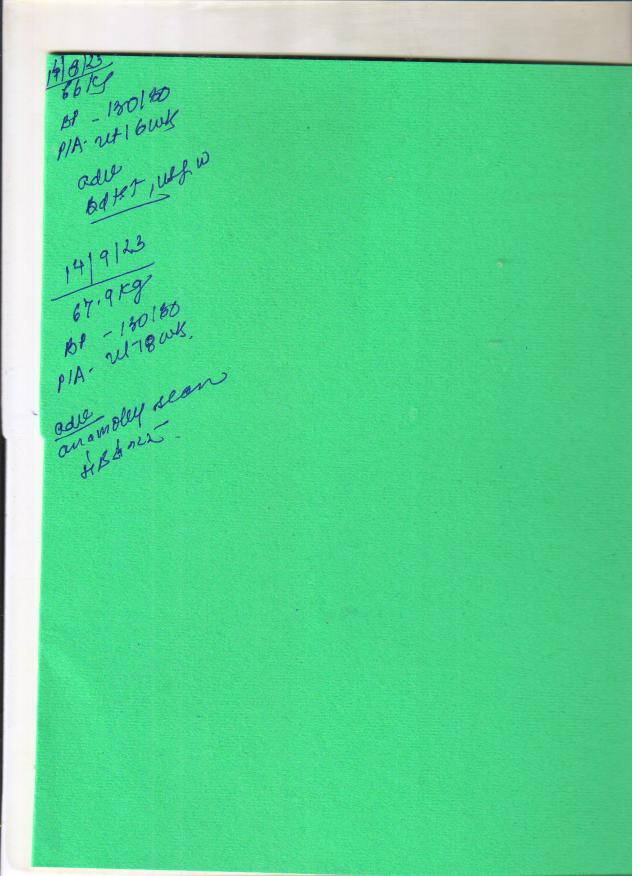 14/8/23
66 Kg
BP - 130/80
P/A - ut 16 wk
adv
14/9/23
67.9 Kg
BP - 130/80
P/A - ut 18 wk.
adv
anamoly scan